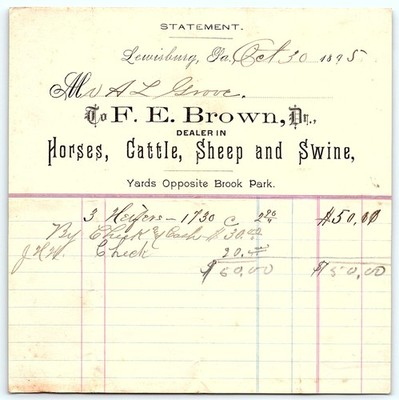 STATEMENT.
Lewisburg, Pa, Oct 30 1895
Mr A L Grove.
To F. E. Brown, Dr.,
DEALER IN
Horses, Cattle, Sheep and Swine,
Yards Opposite Brook Park.
3 Heifers – 1730 $50.00
By Check & Cash $30.00
Check 20.00
$50.00 $50.00